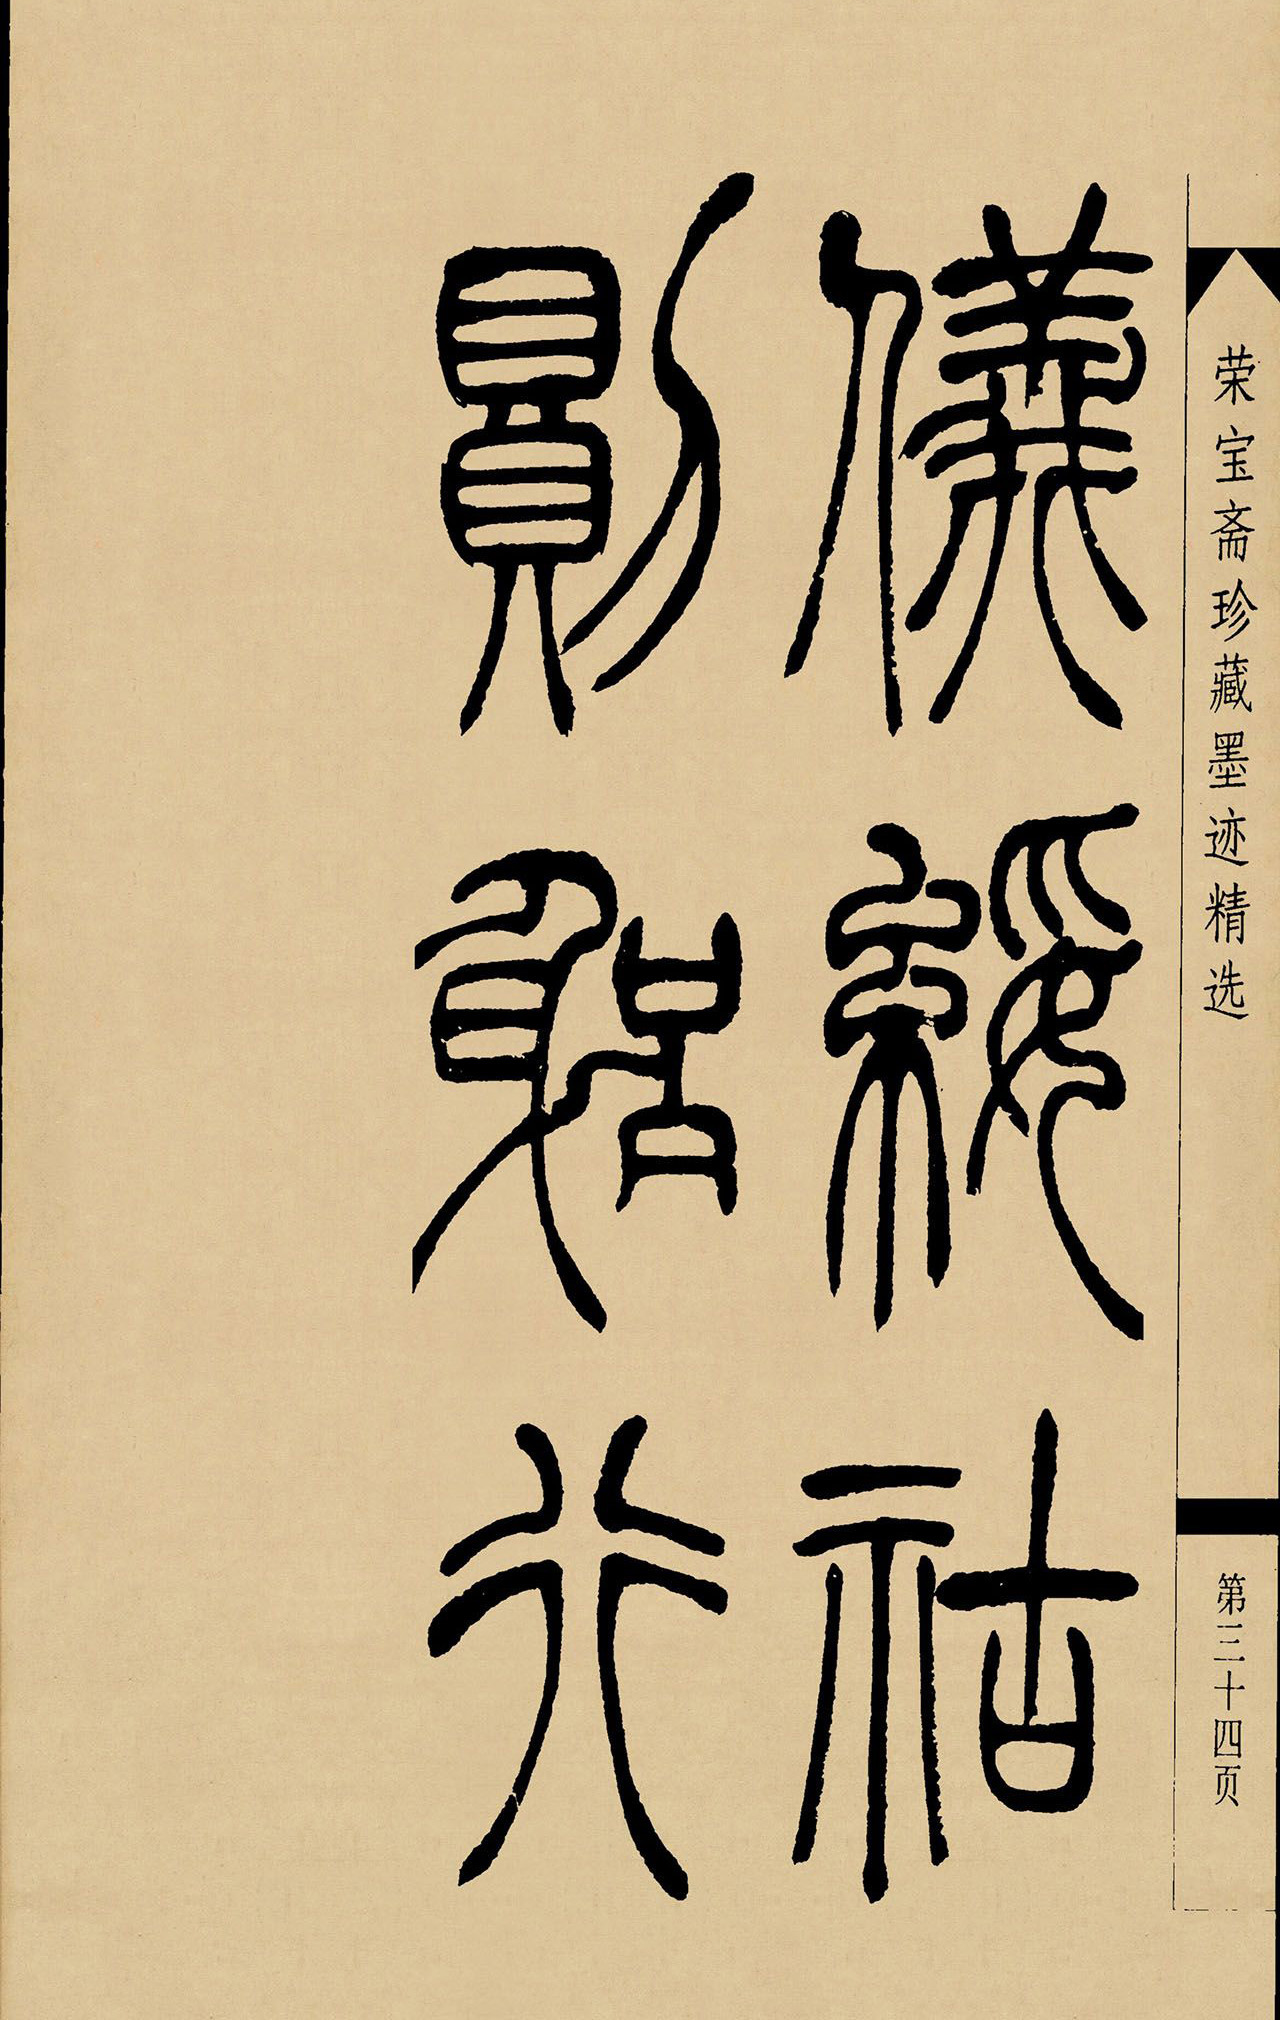 荣宝斋珍藏墨迹精选
第三十四页
儀綏祜
則敢行